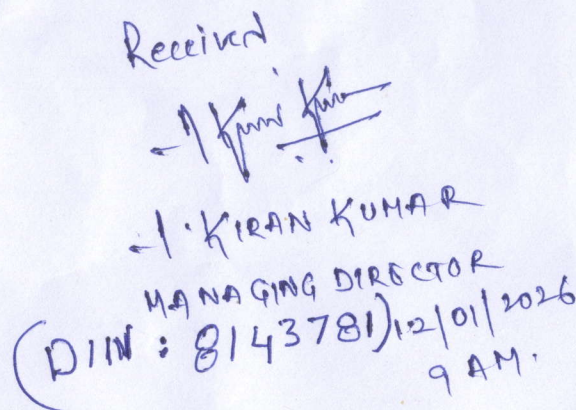 Received
J. KIRAN KUMAR
MANAGING DIRECTOR
(DIN : 8143781) 12/01/2026
9 AM.